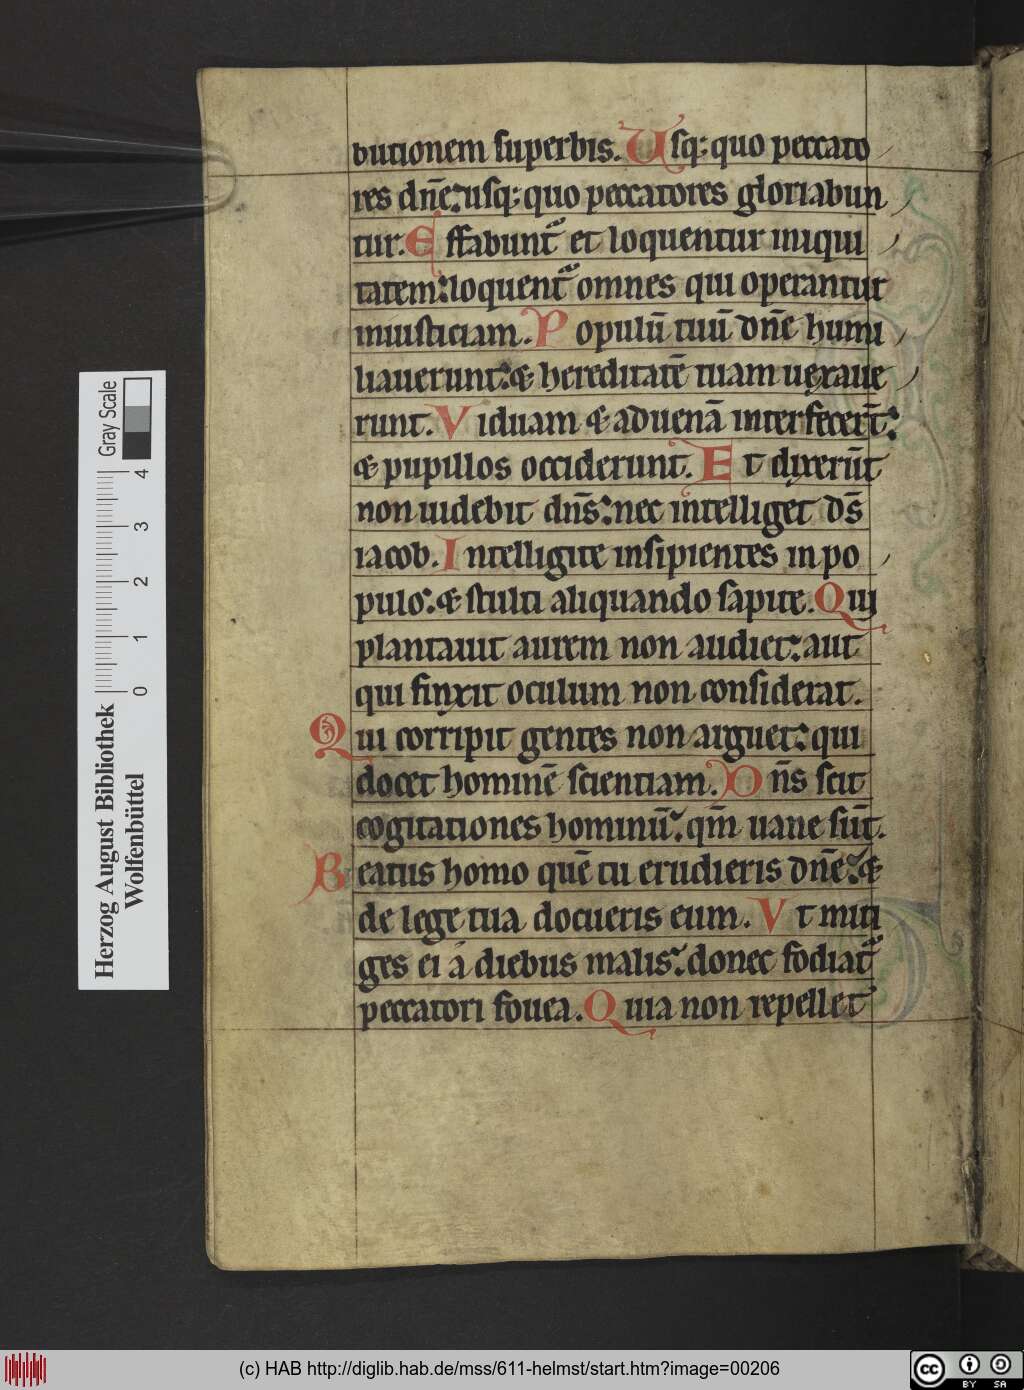 butionem superbis. Usq; quo peccato
res dn̄e: usq; quo peccatores gloriabun
tur. Effabunt᷑ et loquentur iniqui
tatem: loquent᷑ omnes qui operantur
iniusticiam. Populū tuū dn̄e humi
liauerunt: & hereditatē tuam uexaue
runt. Viduam & aduenā interfecer̄t:
& pupillos occiderunt. Et dixerūt
non uidebit dn̄s: nec intelliget ds̄
iacob. Intelligite insipientes in po
pulo: & stulti aliquando sapite. Qui
plantauit aurem non audiet: aut
qui finxit oculum non considerat.
Qui corripit gentes non arguet: qui
docet hominē scientiam. Dn̄s scit
cogitationes hominū: qm̄ uane sūt.
Beatus homo quē tu erudieris dn̄e: &
de lege tua docueris eum. Vt miti
ges ei a diebus malis: donec fodiat᷑
peccatori fouea. Quia non repellet
Herzog August Bibliothek
Wolfenbüttel
0 1 2 3 4
Gray Scale
(c) HAB http://diglib.hab.de/mss/611-helmst/start.htm?image=00206
cc BY SA